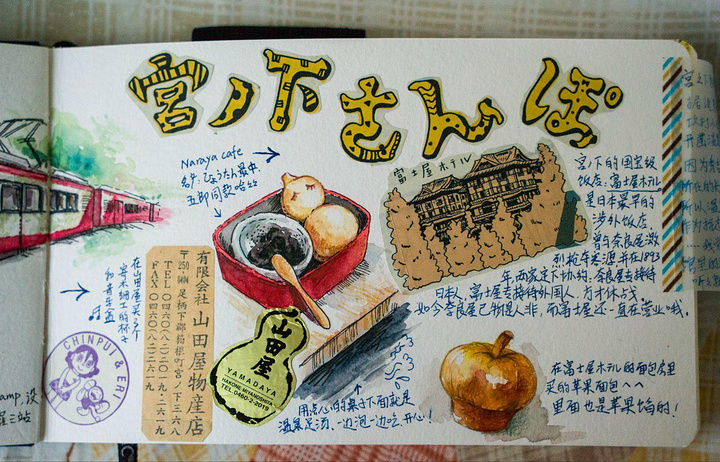 宮ノ下さんぽ
Naraya cafe
名字:ひょうたん最中,
五郎同款哈哈
富士屋ホテル
宮ノ下的国宝级
饭店:富士屋ホテル
是日本最早的
涉外饭店
曾与奈良屋激
烈抢夺客源 并在1893
年两家定下协约,奈良屋专接待
日本人,富士屋专接待外国人,方才休战.
如今奈良屋已物是人非,而富士屋还一直在营业哦.
在山田屋买了个
寄木细工的杯子
和音乐盒
有限会社 山田屋物産店
〒250-0404 足柄下郡箱根町宮ノ下三六八
TEL 〇四六〇(八二)二六一九
FAX 〇四六〇(八二)六一一九
山田屋
YAMADAYA
HAKONE-MIYANOSHITA
TEL.0460-2-2619
CHINPUI & ERI
用点心的桌子下面就是
温泉足汤,一边泡一边吃,开心!
在富士屋ホテル的面包房里
买的苹果面包^^
里面也是苹果馅的!